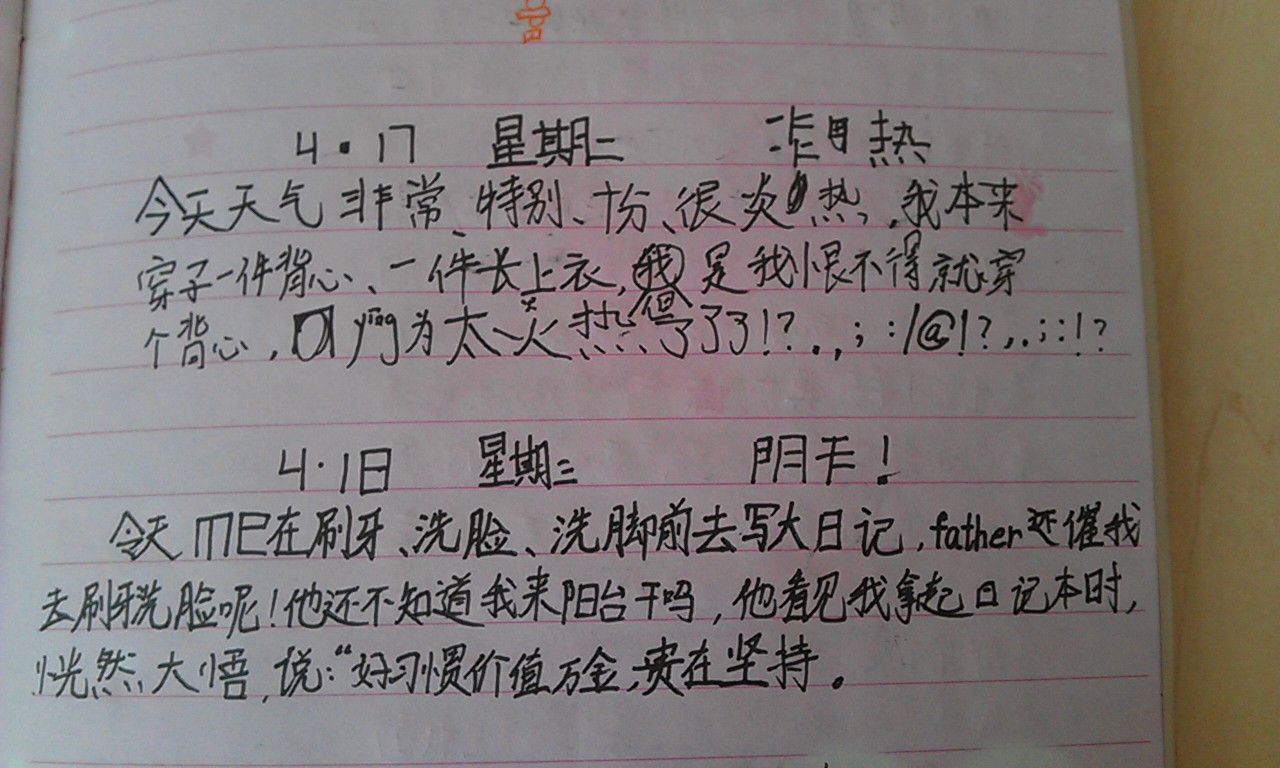 4·17 星期二 热
今天天气非常、特别、十份、很炎热,我本来
穿了一件背心、一件长上衣,但是我恨不得就穿
个背心,因ying为太炎热了了了!?.,;:/@!?,.;::!?
4·1日 星期三 阴 !
今天ME在刷牙、洗脸、洗脚前去写大日记,father还催我
去刷牙洗脸呢!他还不知道我来阳台干吗,他看见我拿起日记本时,
恍然大悟,说:“好习惯价值万金,贵在坚持。